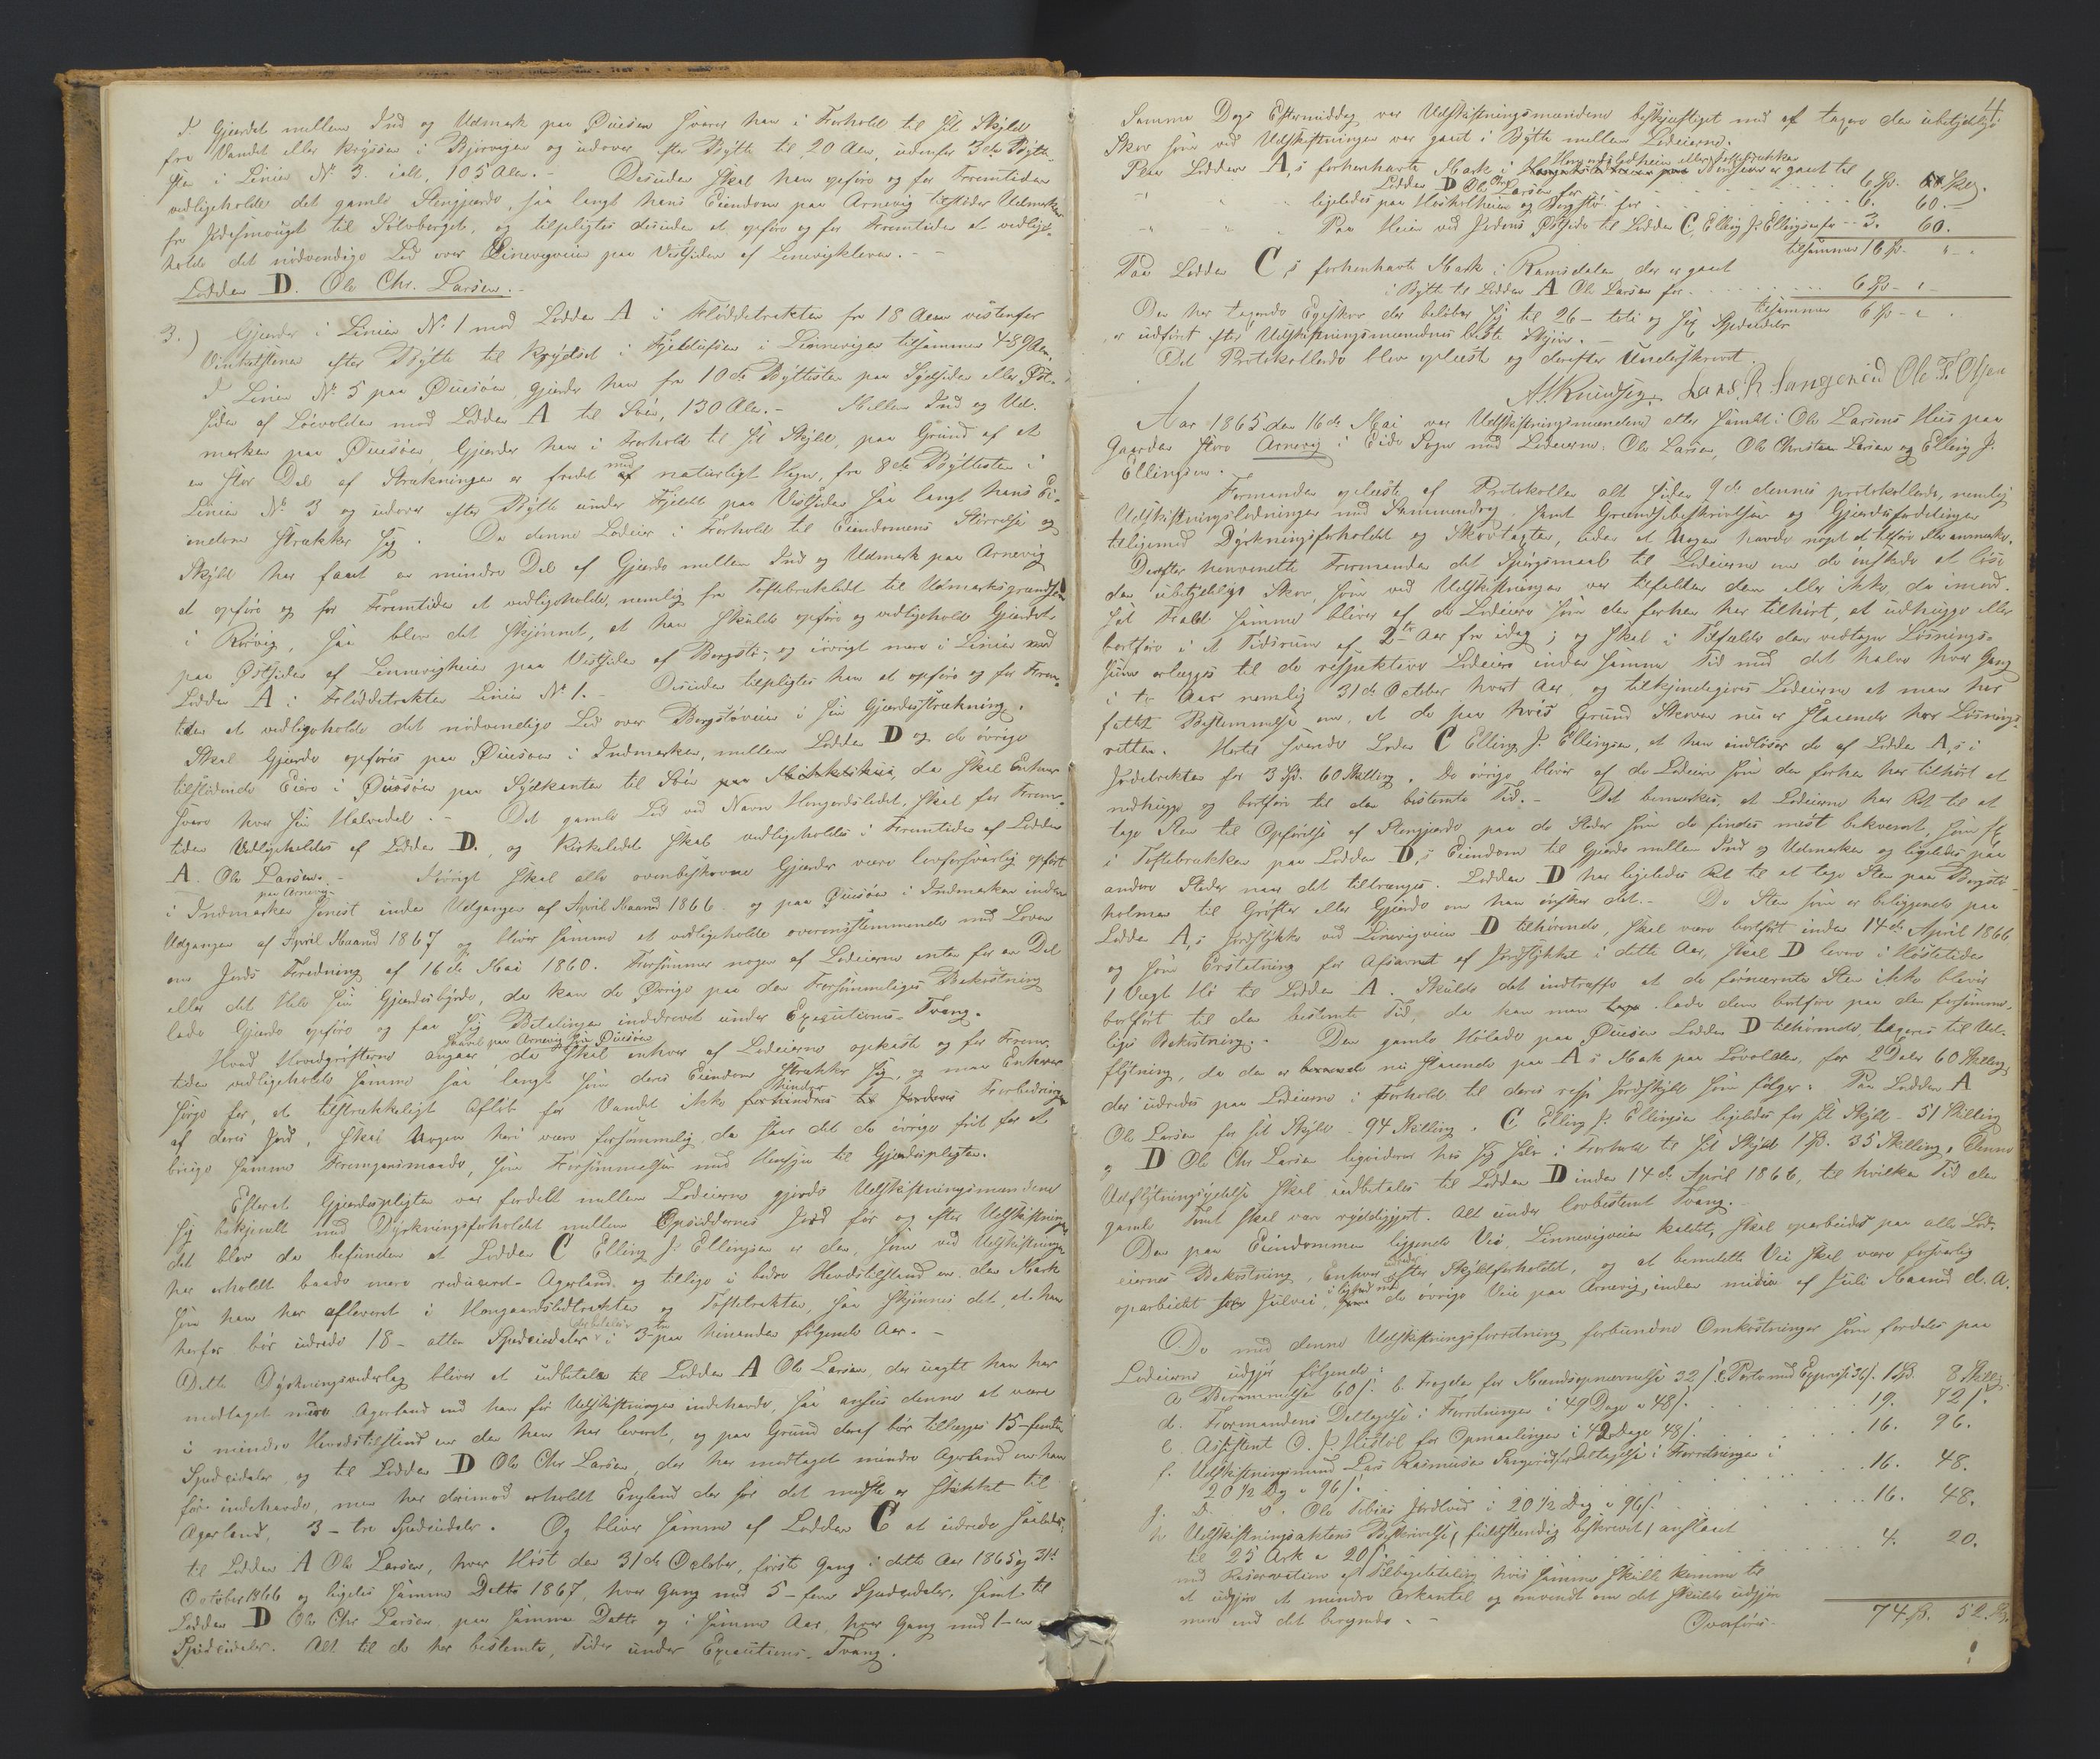 I Gjærdet mellem Ind og Udmark paa Øuesøen svarer han i Forhold til sit Skyld
fra Vandet eller krydset i Bjorvigen og udover efter Bytte til 20 Alen, udenfor 3die Bytte-
sten i Linien No 3. ialt, 105 Alen. - Desuden skal han opføre og for Fremtiden
vedligeholde det gamle Stengjærde, saa langt hans Eiendom paa Arnevig tilstøder Udmarken
fra til Solvberget, og tilpligtes desuden at opføre og for Fremtiden at vedlige-
holde det nødvendige Led over Linevigveien paa Vestsiden af Linevigkleven. -
Lodden D. Ole Chr. Larsen. -
3.) Gjærder i Linien No 1 mod Lodden A i Fløddetrakten fra 18 Alen vestenfor
Vinkelstenen efter Bytte til Krydset i Fjeldufsen i Linnevigen tilsammen 489 Alen.
I Linien No 5 paa Øuesøen gjærder han fra 10de Byttesten paa Sydsiden eller Øst-
siden af Løevolden mod Lodden A til Søen, 130 Alen. - Mellem Ind og Ud-
marken paa Øuesøen, Gjærder han i Forhold til sit Skyld, paa Grund af at
en stor Del af Strækningen er fredet med af naturligt Vegn, fra 8de Byttesten i
Linien No 3 og udover efter Bytte under Fjeldet paa Vestsiden saa langt hans Ei-
endom strækker sig. Da denne Lodeier i Forhold til Eiendomens Størrelse og
Skyld har faaet en mindre Del af Gjærde mellem Ind og Udmark paa Arnevig
at opføre og for Fremtiden at vedligeholde, nemlig fra Toftebrækledet til Udmarksgrændsen
i Rørvig, saa blev det skjønnet, at han skulde opføre og vedligeholde Gjærdet
paa Østsiden af Linnevigheien paa Vestsiden af Bergstø-, og iøvrigt mere i Linien med
Lodden A i Fløddetrakten Linien No 1. - Desuden tilpligtes han at opføre og for Frem-
tiden at vedligeholde det nødvendige Led over Bergstøveien i sin Gjærdestrækning.
Skal Gjærde opføres paa Øuesøen i Indmarken, mellem Lodden D og de øvrige
tilstødende Eiere i Øuesøen paa Sydkanten til Søen paa, da skal Enhver
svare hver sin Halvedel. - Det gamle Led ved Navn Hongardsledet, skal for Frem-
tiden Vedligeholdes af Lodden D., og Kirkeledet skal vedligeholdes i Fremtiden af Lodden
A. Ole Larsen. - Iøvrigt skal alle ovenbeskrevne Gjærder være lovforsvarlig opført
paa Arnevig
i Indmarken senest inden Udgangen af April Maaned 1866 og paa Øuesøen i Indmarken inden
Udgangen af April Maaned 1867 og bliver samme at vedligeholde overensstemmende med Loven
om Jords Fredning af 16de Mai 1860. Forsømmer nogen af Lodeierne enten for en Del
eller det Hele sin Gjærdesbyrde, da kan de Øvrige paa den Forsømmeliges Bekostning
lade Gjærde opføre og faa sig Betalingen inddrevet under Executions-Tvang.
saavel paa Arnevig som Øuesøen
Hvad Hovedgrøfterne angaar, da skal enhver af Lodeierne opkaste og for Frem-
tiden vedligeholde samme saa langt som deres Eiendom strækker sig, og maa Enhver
hindres
sørge for, at tilstrækkeligt Afløb for Vandet ikke forhindres til Jordens Forbedringer
af deres Jord, skal Nogen heri være forsømmelig, da staar det de øvrige frit for at
bruge samme Fremgansmaade, som Forsømmelsen med Hensyn til Gjærdespligten.
Efterat Gjærdespligten var fordelt mellem Lodeierne gjorde Udskiftningsmændene
sig bekjendt med Dyrkningsforholdet mellem Opsiddernes Jord før og efter Udskiftningen
det blev da befunden at Lodden C Elling J. Ellingsen er den, som ved Udskiftningen
har erholdt baade mere reduceret Agerland og tillige i bedre Hevdstilstand en den Mark
som han har afleveret i Hongaardsledtrakten og Toftetrakten, saa skjønnes det, at han
der betales
herfor bør udrede 18 - atten Speciedaler i 3-tre paa hinanden følgende Aar. -
Dette Dyrkningsvederlag bliver at udbetale til Lodden A Ole Larsen, der uagtet han har
modtaget mere Agerland end han før Udskiftningen indehavde, saa ansees denne at være
i mindre Hevdstilstand en den han har leveret, og paa Grund deraf bør tillægges 15-femten
Speciedaler, og til Lodden D Ole Chr Larsen, der har modtaget mindre Agerland en han
før indehavde, men har derimod erholdt England der for det meste er skikket til
Agerland, 3 - tre Speciedaler. Og bliver samme af Lodden C at udrede saaledes:
til Lodden A Ole Larsen, hver Høst den 31de October, første Gang i dette Aar 1865 og 31te
October 1866 og ligeledes samme Datto 1867, hver Gang med 5 - fem Speciedaler, samt til
Lodden D Ole Chr Larsen, paa samme Datto og i samme Aar, hver Gang med 1 - en
Speciedaler. Alt til de her bestemte Tider under Executions-Tvang.
4
Samme Dags Eftermiddag var Udskiftningsmændene beskjæftiget med at taxere den ubetydelige
Skov som ved Udskiftningen var gaaet i Bytte mellem Lodeierne.
Paa Lodden A,s forhenhavte Mark i Hongaardsledheien eller Toftebrækken er gaaet til
Lodden D Ole Chr Larsen for 6 Sp. 60 Skg.
" " " ligeledes paa og Bergstø for 6. 60. -
" " " Paa Heien ved Jordens Østside til Lodden C, Elling J. Ellingsen for - 3. 60.
tilsammen 16 Sp. " - "
Paa Lodden C,s forhenhavte Mark i Ramsdalen der er gaaet
i Bytte til Lodden A Ole Larsen for 6 Sp - " -
tilsammen 6 Sp - " .
Den her taxerede Egeskov der beløber sig til 26 - teti og sex Speciedaler
er udført efter Udskiftningsmændenes bedste Skjøn. -
Det Protokollerede blev oplæst og derefter Underskrevet.
A. Knudsen. Lars R. Sangereid Ole T. Olsen
Aar 1865 den 16de Mai var Udskiftningsmændene atter samlet i Ole Larsens Hus paa
Gaarden store Arnevig i Eide Sogn med Lodeierne: Ole Larsen, Ole Christen Larsen og Elling J.
Ellingsen.
Formanden oplæste af Protokollen alt siden 9de dennes protokollerede, nemlig
Udskiftningsledningen med Sammendrag, samt Grændsebeskrivelsen og Gjærdesfordelingen
tilligemed Dyrkningsforholdet og Skovtaxten, uden at Nogen havde noget at tilføie eller anmærke.
Derefter henvendte Formanden det Spørgsmaal til Lodeierne om de ønskede at løse
den ubetydelige Skov, som ved Udskiftningen var tilfalden dem eller ikke, da i mod-
sat Fald samme bliver af de Lodeiere som den forhen har tilhørt, at udhugge eller
bortføre i et Tidsrum af 2de Aar fra idag; og skal i Tilfælde den vedtagne Løsnings-
sum erlægges til de respektive Lodeiere inden samme Tid med det halve hver Gang
i to Aar nemlig 31te October hvert Aar, og tilkjendegives Lodeierne at man har
fattet Bestemmelse om, at de paa hvis Grund Skoven nu er staaende har Løsnings-
retten. Hertil svarede Lodden C Elling J. Ellingsen, at han indløser de af Lodden A,s i
Jordetrakten for 3 Sp. 60 Skilling. De øvrige bliver af de Lodeiere som den forhen har tilhørt at
nedhugge og bortføre til den bestemte Tid. - Det bemærkes, at Lodeierne har Ret til at
tage Sten til Opførelse af Stengjærde paa de Steder som de findes mest bekvemt, som f.E.
i Toftebrækken paa Lodden D,s Eiendom til Gjærde mellem Ind og Udmarken og ligeledes paa
andre Steder naar det tiltrænges. Lodden D har ligeledes Ret til at tage Sten paa Bergstø-
holmen til Grøfter eller Gjærde om han ønsker det. - De Sten som er beliggende paa
Lodden A,s Jordstykke ved Linevigveien D tilhørende, skal være bortført inden 14de April 1866
og som Erstatning for Afsavnet af Jordstykket i dette Aar, skal D levere i Høstetiden
1 Vægt Hø til Lodden A. Skulde det indtræffe at de førnævnte Sten ikke bliver
bortført til den bestemte Tid, da kan man lade dem bortføre paa den forsømme-
liges Bekostning. - Den gamle Hølade paa Øuesøen Lodden D tilhørende, taxeres til Ud-
flytning, da den er nu staaende paa A,s Mark paa Løvolden, for 2 Daler 60 Skilling,
der udredes paa Lodeierne i Forhold til deres resp. Jordskyld som følger: Paa Lodden A
Ole Larsen for sit Skyld - 94 Skilling. C Elling J. Ellingsen ligeledes for sit Skyld - 51 Skilling
og D Ole Chr Larsen ligviderer hos sig selv i Forhold til sit Skyld 1 Sp. 35 Skilling. Denne
Udflytningsydelse skal indbetales til Lodden D inden 14de April 1866, til hvilken Tid den
gamle Tomt skal være ryddiggjort. Alt under lovbestemt Tvang. -
Den paa Eiendommen liggende Vei, Linnevigveien kaldet, skal oparbeides paa alle Lod-
eiernes Bekostning, Enhver efter Skyldforholdet, og at bemeldte Vei skal være forsvarlig
i lighed med
oparbeidet Julvei, de øvrige Veie paa Arnevig, inden midten af Juli Maaned d.A.
De med denne Udskiftningsforretning forbundne Omkostninger som fordeles paa
Lodeierne udgjør følgende:
a Berammelse 60 s. b. Fragelse for Mændsopnævnelse 32 s. c Porto med Expresse 36 s. 1 Sp. 8 Skillg.
d. Formandens Deltagelse i Forretningen i 49 Dage a 48 s. 19. 72 s.
e. Assistent O. J. Hisdøl for Opmaalingen i 42 Dage 48 s. 16. 96.
f. Udskiftningsmand Lars Rasmusen Sangereid for Deltagelse i Forretningen i
20 1/2 Dag a 96 s. 16. 48.
g. D. o. Ole Tobias Jordlvid i 20 1/2 Dag a 96 s. 16. 48.
h Udskiftningsaktens Beskrivelse (fuldstændig beskrevet) anslaaet
til 25 Ark a 20 s. 4. 20.
med Reservation af Tilbagebetaling hvis samme skulle komme til
at udgjøre et mindre Arkantal og omvendt om det skulde udgjøre
mere end det beregnede. -
Overføres. 74 Sp. 52 Sk.